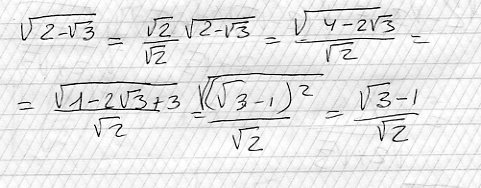 √(2-√3) = √2/√2 √(2-√3) = √(4-2√3)/√2 =
= √(1-2√3+3)/√2 = √((√3-1)²)/√2 = √3-1/√2